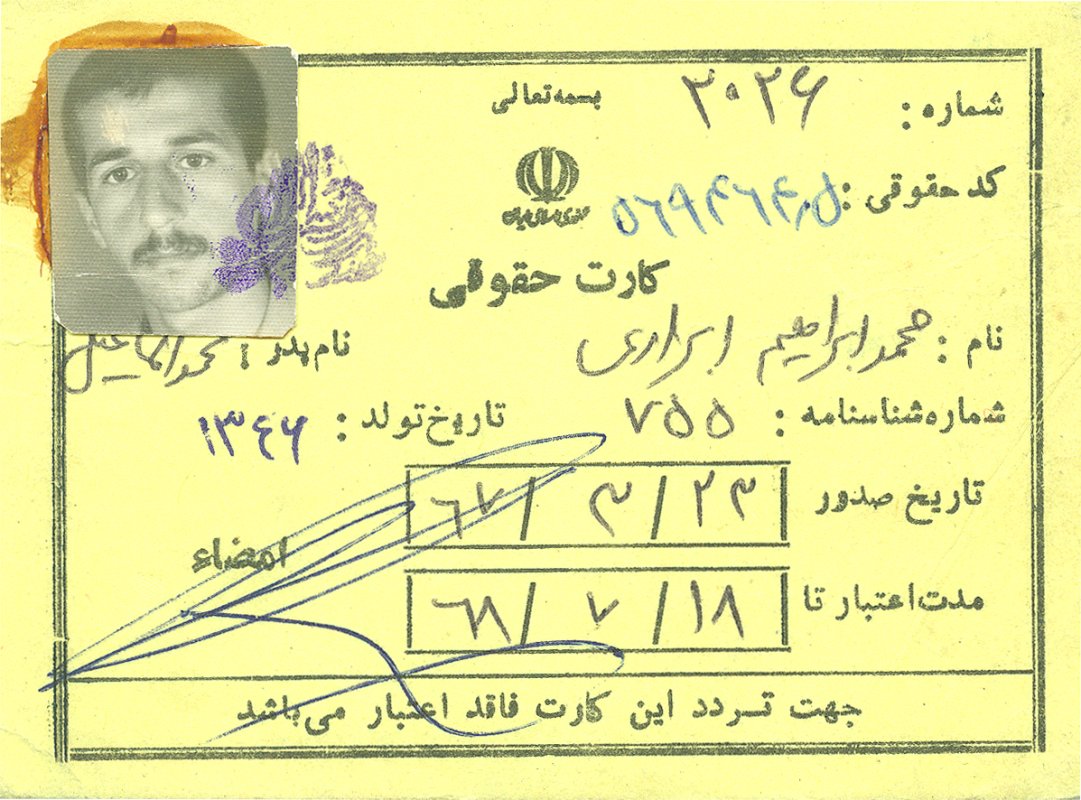 بسمه تعالی
شماره : ۲۰۲۶
کد حقوقی :
کارت حقوقی
نام : محمد ابراهیم ابراری
نام پدر : محمد اسماعیل
شماره شناسنامه : ۷۵۵
تاریخ تولد : ۱۳۴۶
تاریخ صدور ۲۳/ ۳/ ۶۷
امضاء
مدت اعتبار تا ۱۸/ ۷/ ۶۸
جهت تردد این کارت فاقد اعتبار می‌باشد